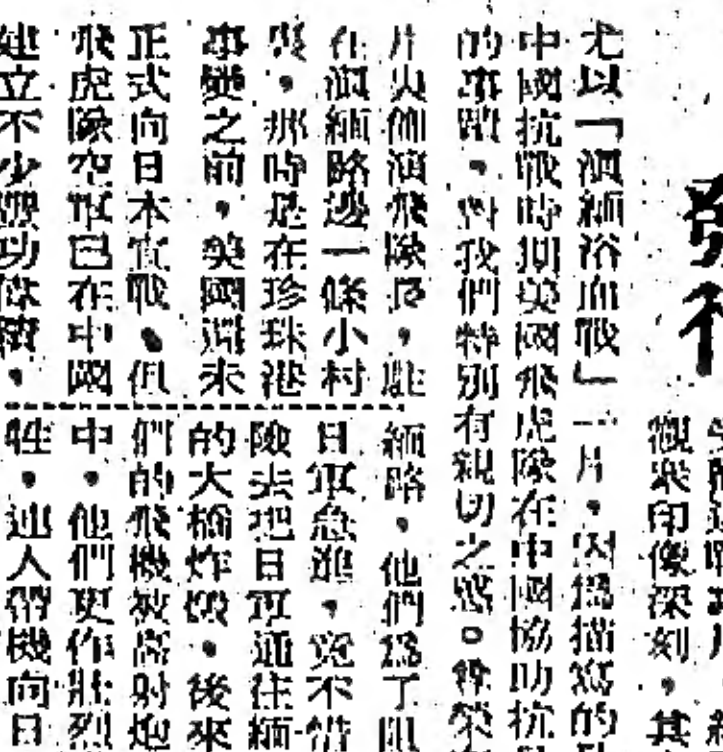 觀衆印像深刻,其
尤以「滇緬浴血戰」一片,因爲描寫的
中國抗戰時期美國飛虎隊在中國協助抗
的事蹟,對我們特別有親切之感。
飾演飛隊長,駐
在滇緬路邊一條小村
裏。那時是在珍珠港
事變之前,美國還未
正式向日本宣戰。但
飛虎隊空軍已在中國
建立不少戰功偉績。
緬路,他們爲了阻
日軍急進,竟不惜
險去把日軍通往緬
的大橋炸燬。後來
們的飛機被高射炮
中,他們更作壯烈
牲,連人帶機向日